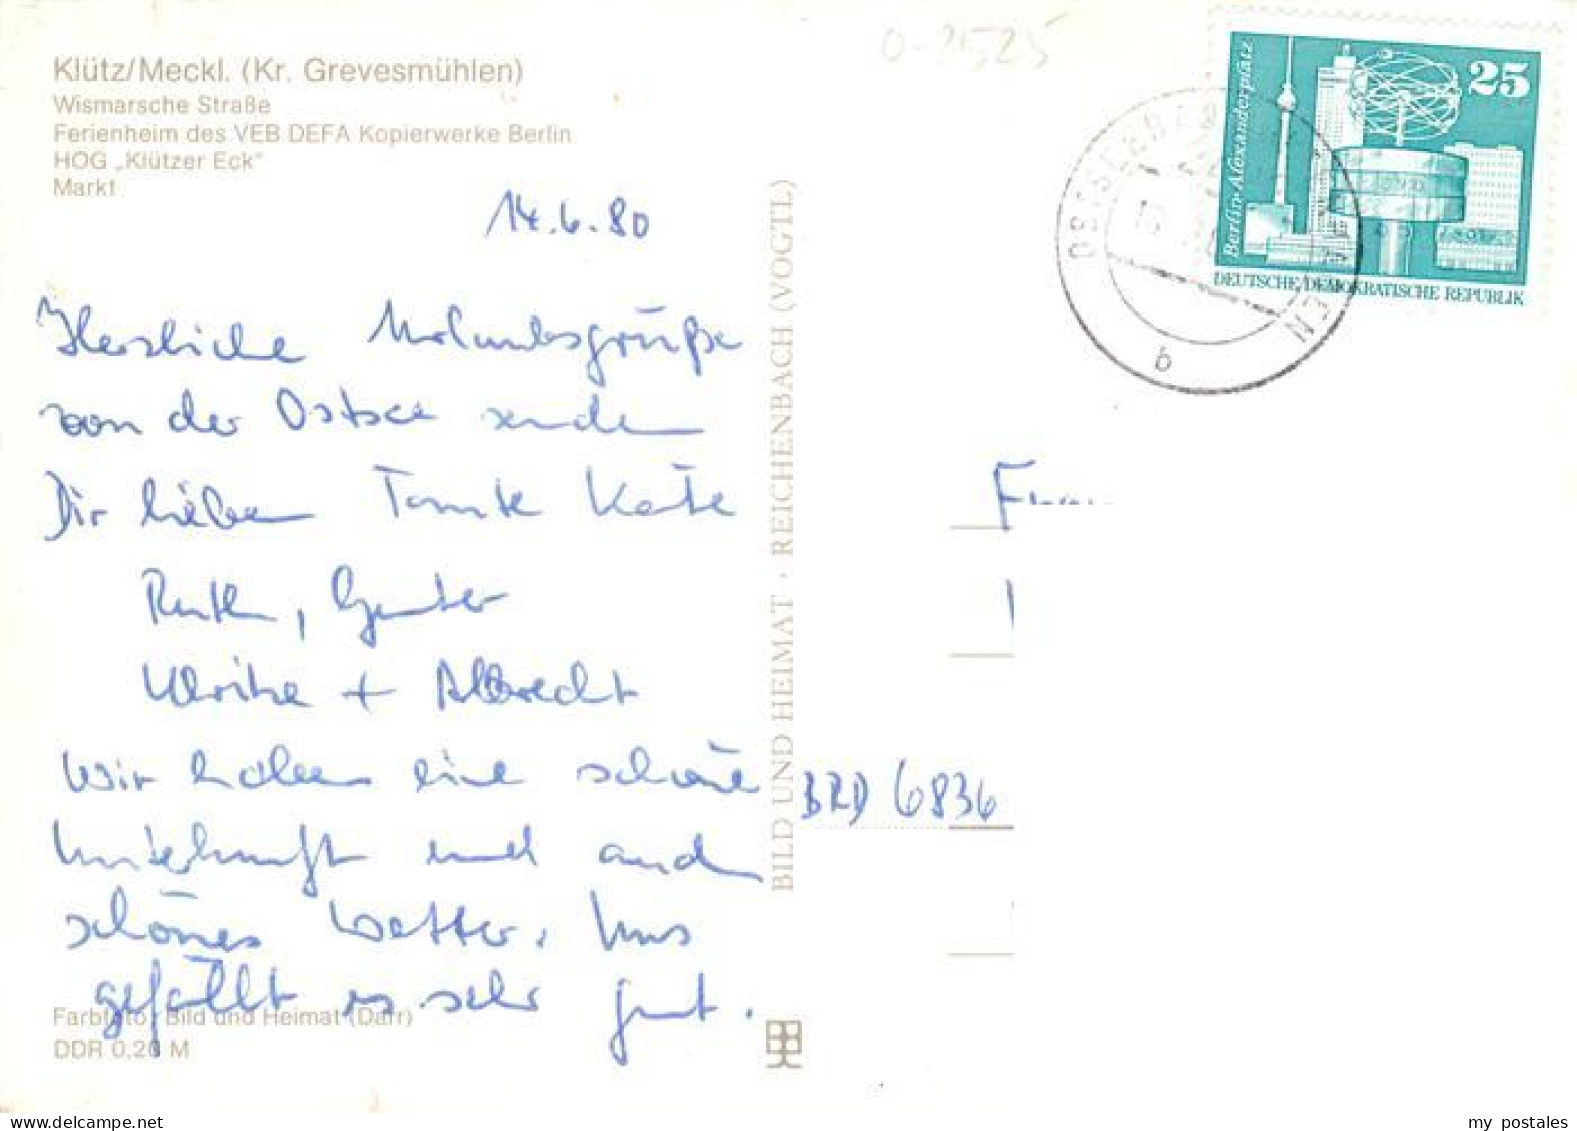 Klütz/Meckl. (Kr. Grevesmühlen)
Wismarsche Straße
Ferienheim des VEB DEFA Kopierwerke Berlin
HOG „Klützer Eck"
Markt
14.6.80
Herzliche Urlaubsgrüße
von der Ostsee senden
Dir lieben Tante Käte
Ruth, Gunter
Ulrike + Albrecht
Wir haben eine schöne
Unterkunft und auch
schönes Wetter. Uns
gefällt es sehr gut.
Farbfoto: Bild und Heimat (Darr)
DDR 0,20 M
BILD UND HEIMAT · REICHENBACH (VOGTL)
0-2525
25
Berlin-Alexanderplatz
DEUTSCHE DEMOKRATISCHE REPUBLIK
b
BRD 6836
my postales